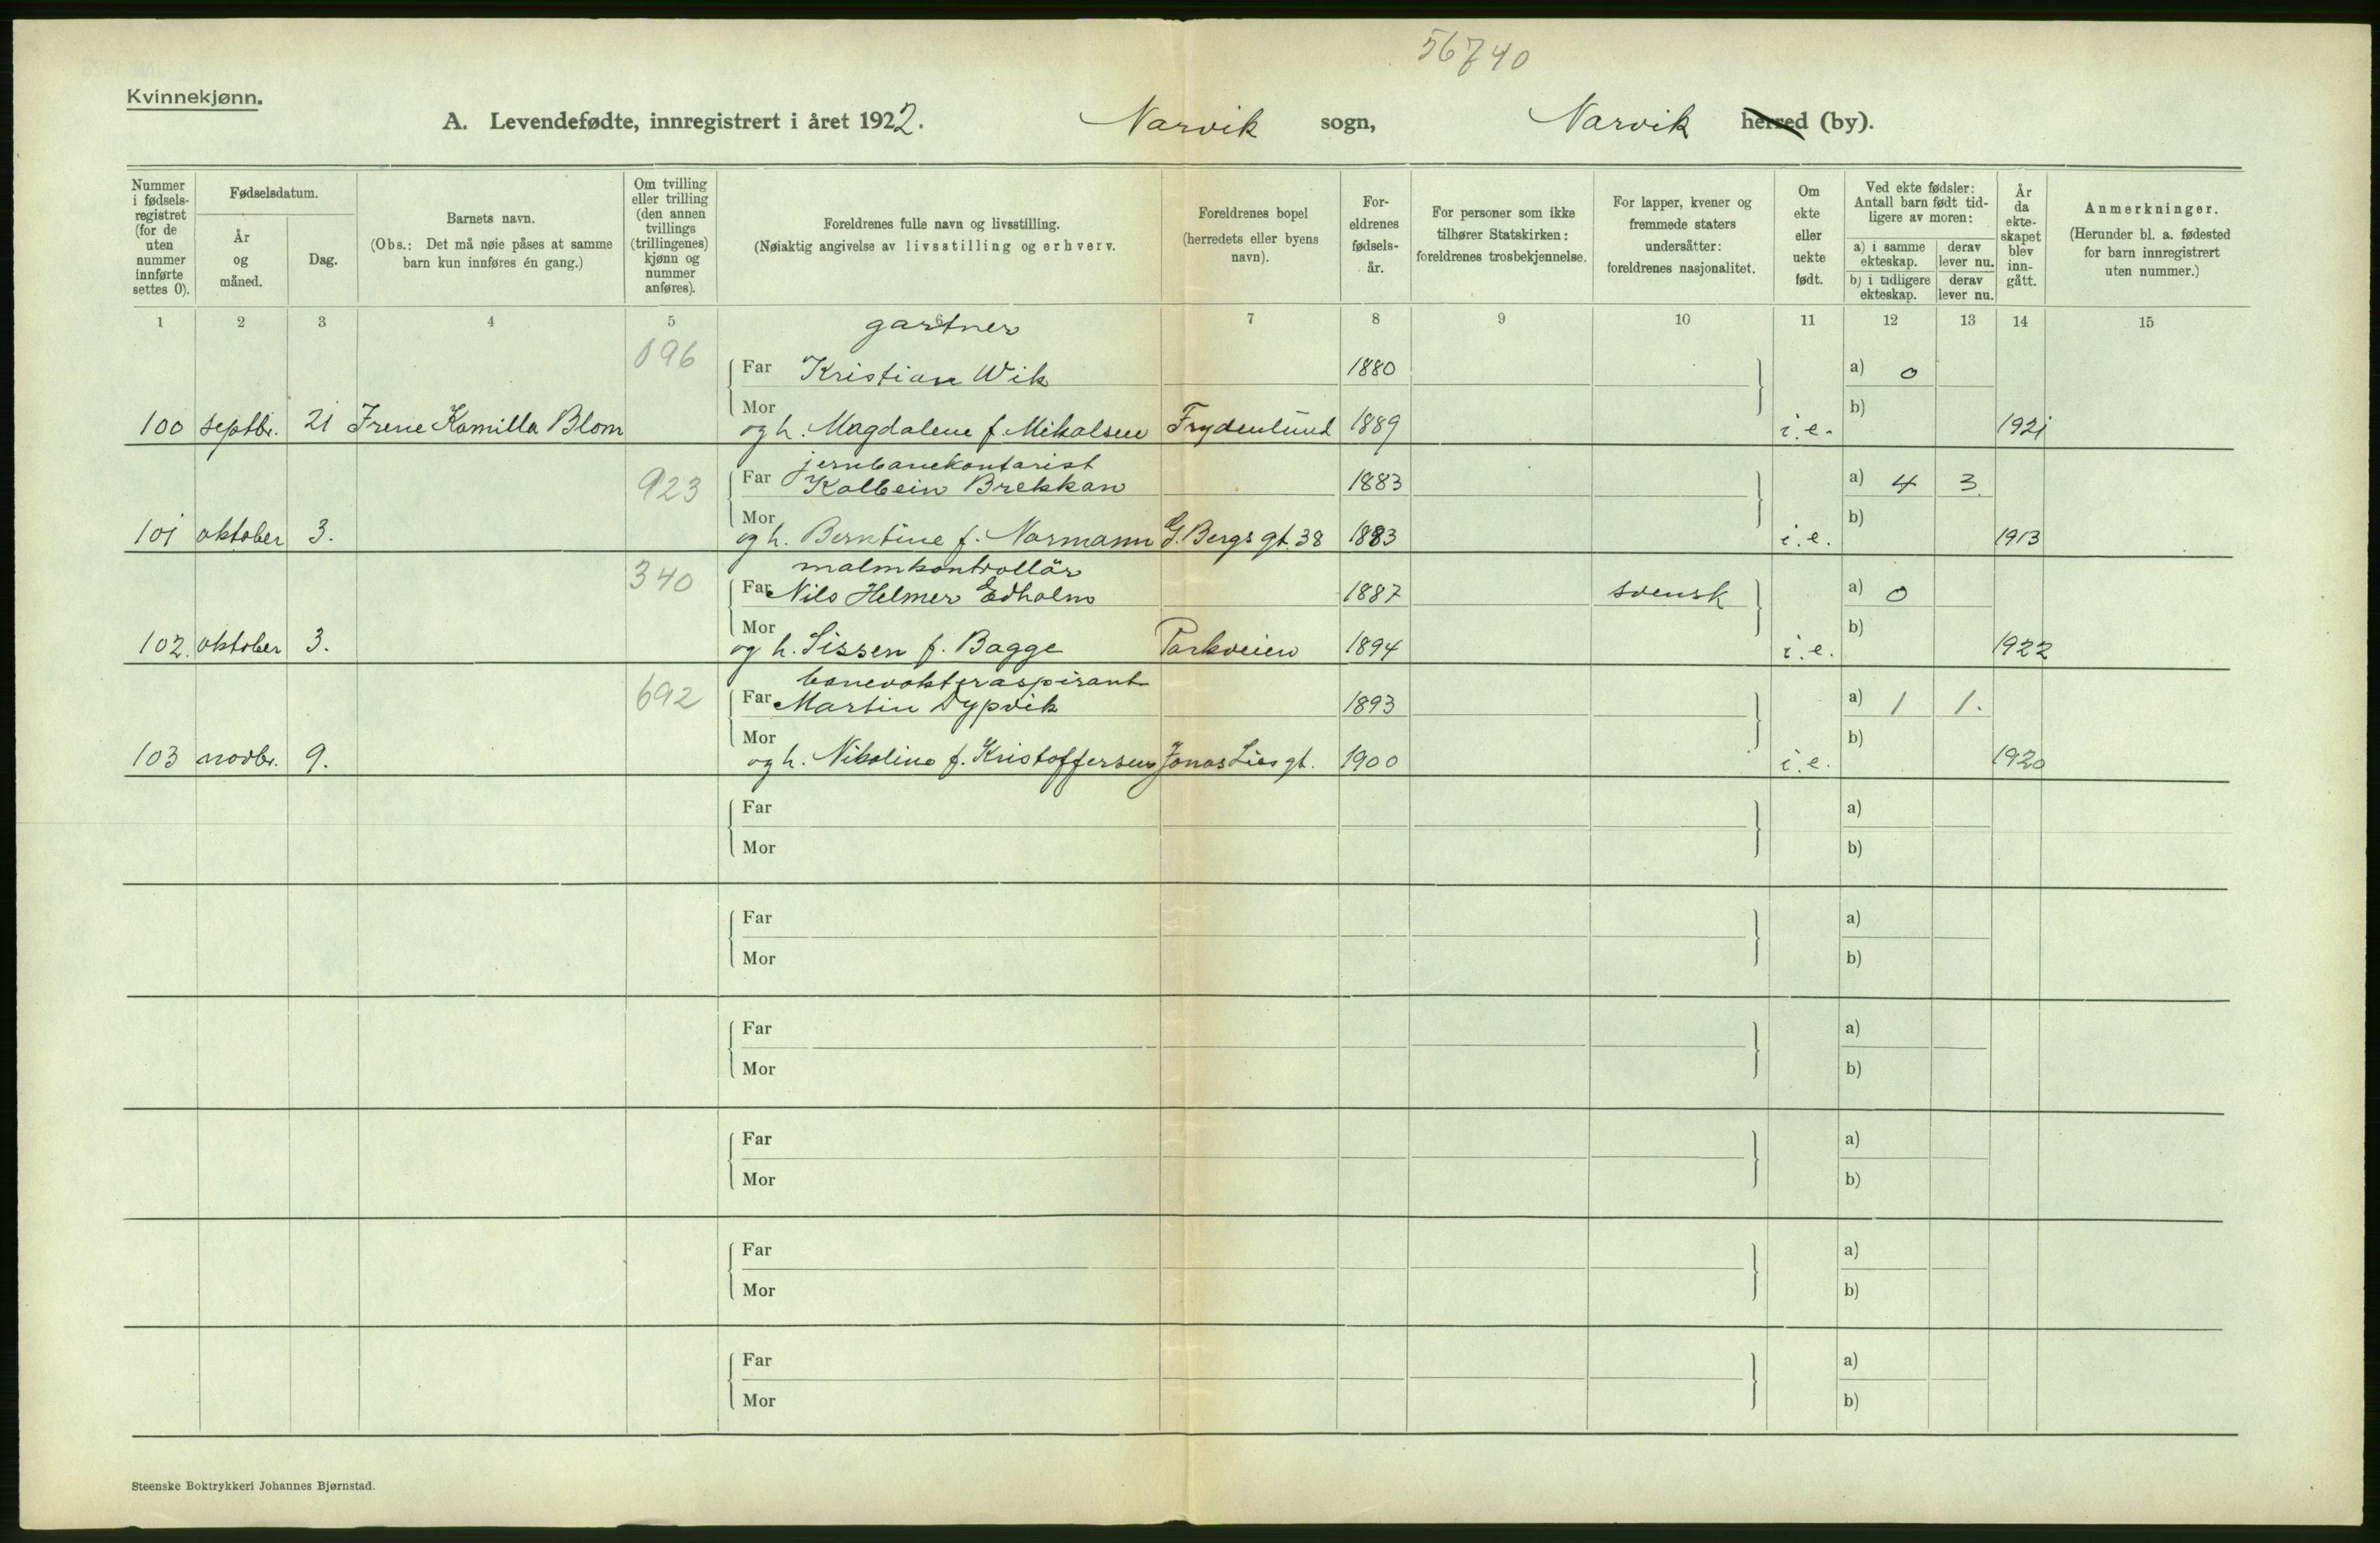 56740
Kvinnekjønn.
A. Levendefødte, innregistrert i året 1922. Narvik sogn, Narvik herred (by).
Nummer i fødselsregistret (for de uten nummer innførte settes 0).
Fødselsdatum.
År og måned.
Dag.
Barnets navn.
(Obs.: Det må nøie påses at samme barn kun innføres én gang.)
Om tvilling eller trilling (den annen tvillings (trillingenes) kjønn og nummer anføres).
Foreldrenes fulle navn og livsstilling.
(Nøiaktig angivelse av livsstilling og erhverv.
Foreldrenes bopel (herredets eller byens navn).
Foreldrenes fødselsår.
For personer som ikke tilhører Statskirken: foreldrenes trosbekjennelse.
For lapper, kvener og fremmede staters undersåtter: foreldrenes nasjonalitet.
Om ekte eller uekte født.
Ved ekte fødsler: Antall barn født tidligere av moren:
a) i samme ekteskap. derav lever nu.
b) i tidligere ekteskap. derav lever nu.
År da ekteskapet blev inngått.
Anmerkninger.
(Herunder bl. a. fødested for barn innregistrert uten nummer.)
1 2 3 4 5 6 7 8 9 10 11 12 13 14 15
gartner
096 Far Kristian Wik 1880 a) 0
Mor b)
100 septbr. 21 Irene Kamilla Blom og h. Magdalene f. Mikalsen Frydenlund 1889 i.e. 1921
jernbanekontorist
923 Far Kolbein Brekkan 1883 a) 4 3.
Mor b)
101 oktober 3. og h. Berntine f. Normann G. Bergs gt. 38 1883 i.e. 1913
malmkontrollör
340 Far Nils Helmer Edholm 1887 svensk a) 0
Mor b)
102. oktober 3. og h. Sissen f. Bagge Parkveien 1894 i.e. 1922
banevokteraspirant
692 Far Martin Dypvik 1893 a) 1 1.
Mor b)
103 novbr. 9. og h. Nikoline f. Kristoffersen Jonas Lies gt. 1900 i.e. 1920
Far a)
Mor b)
Far a)
Mor b)
Far a)
Mor b)
Far a)
Mor b)
Far a)
Mor b)
Far a)
Mor b)
Steenske Boktrykkeri Johannes Bjørnstad.